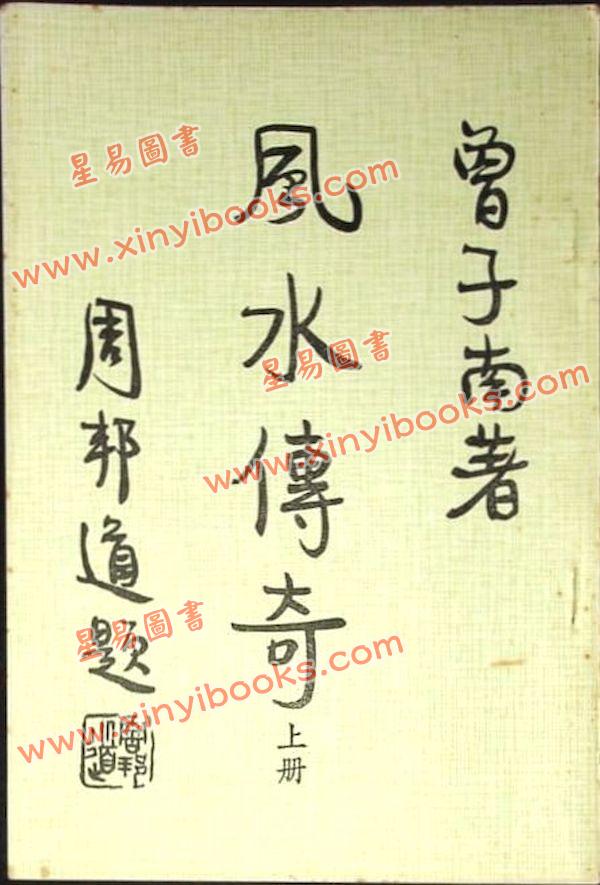 曾子南著
風水傳奇
上册
周邦道題
星易圖書
www.xinyibooks.com
星易圖書
www.xinyibooks.com
星易圖書
www.xinyibooks.com